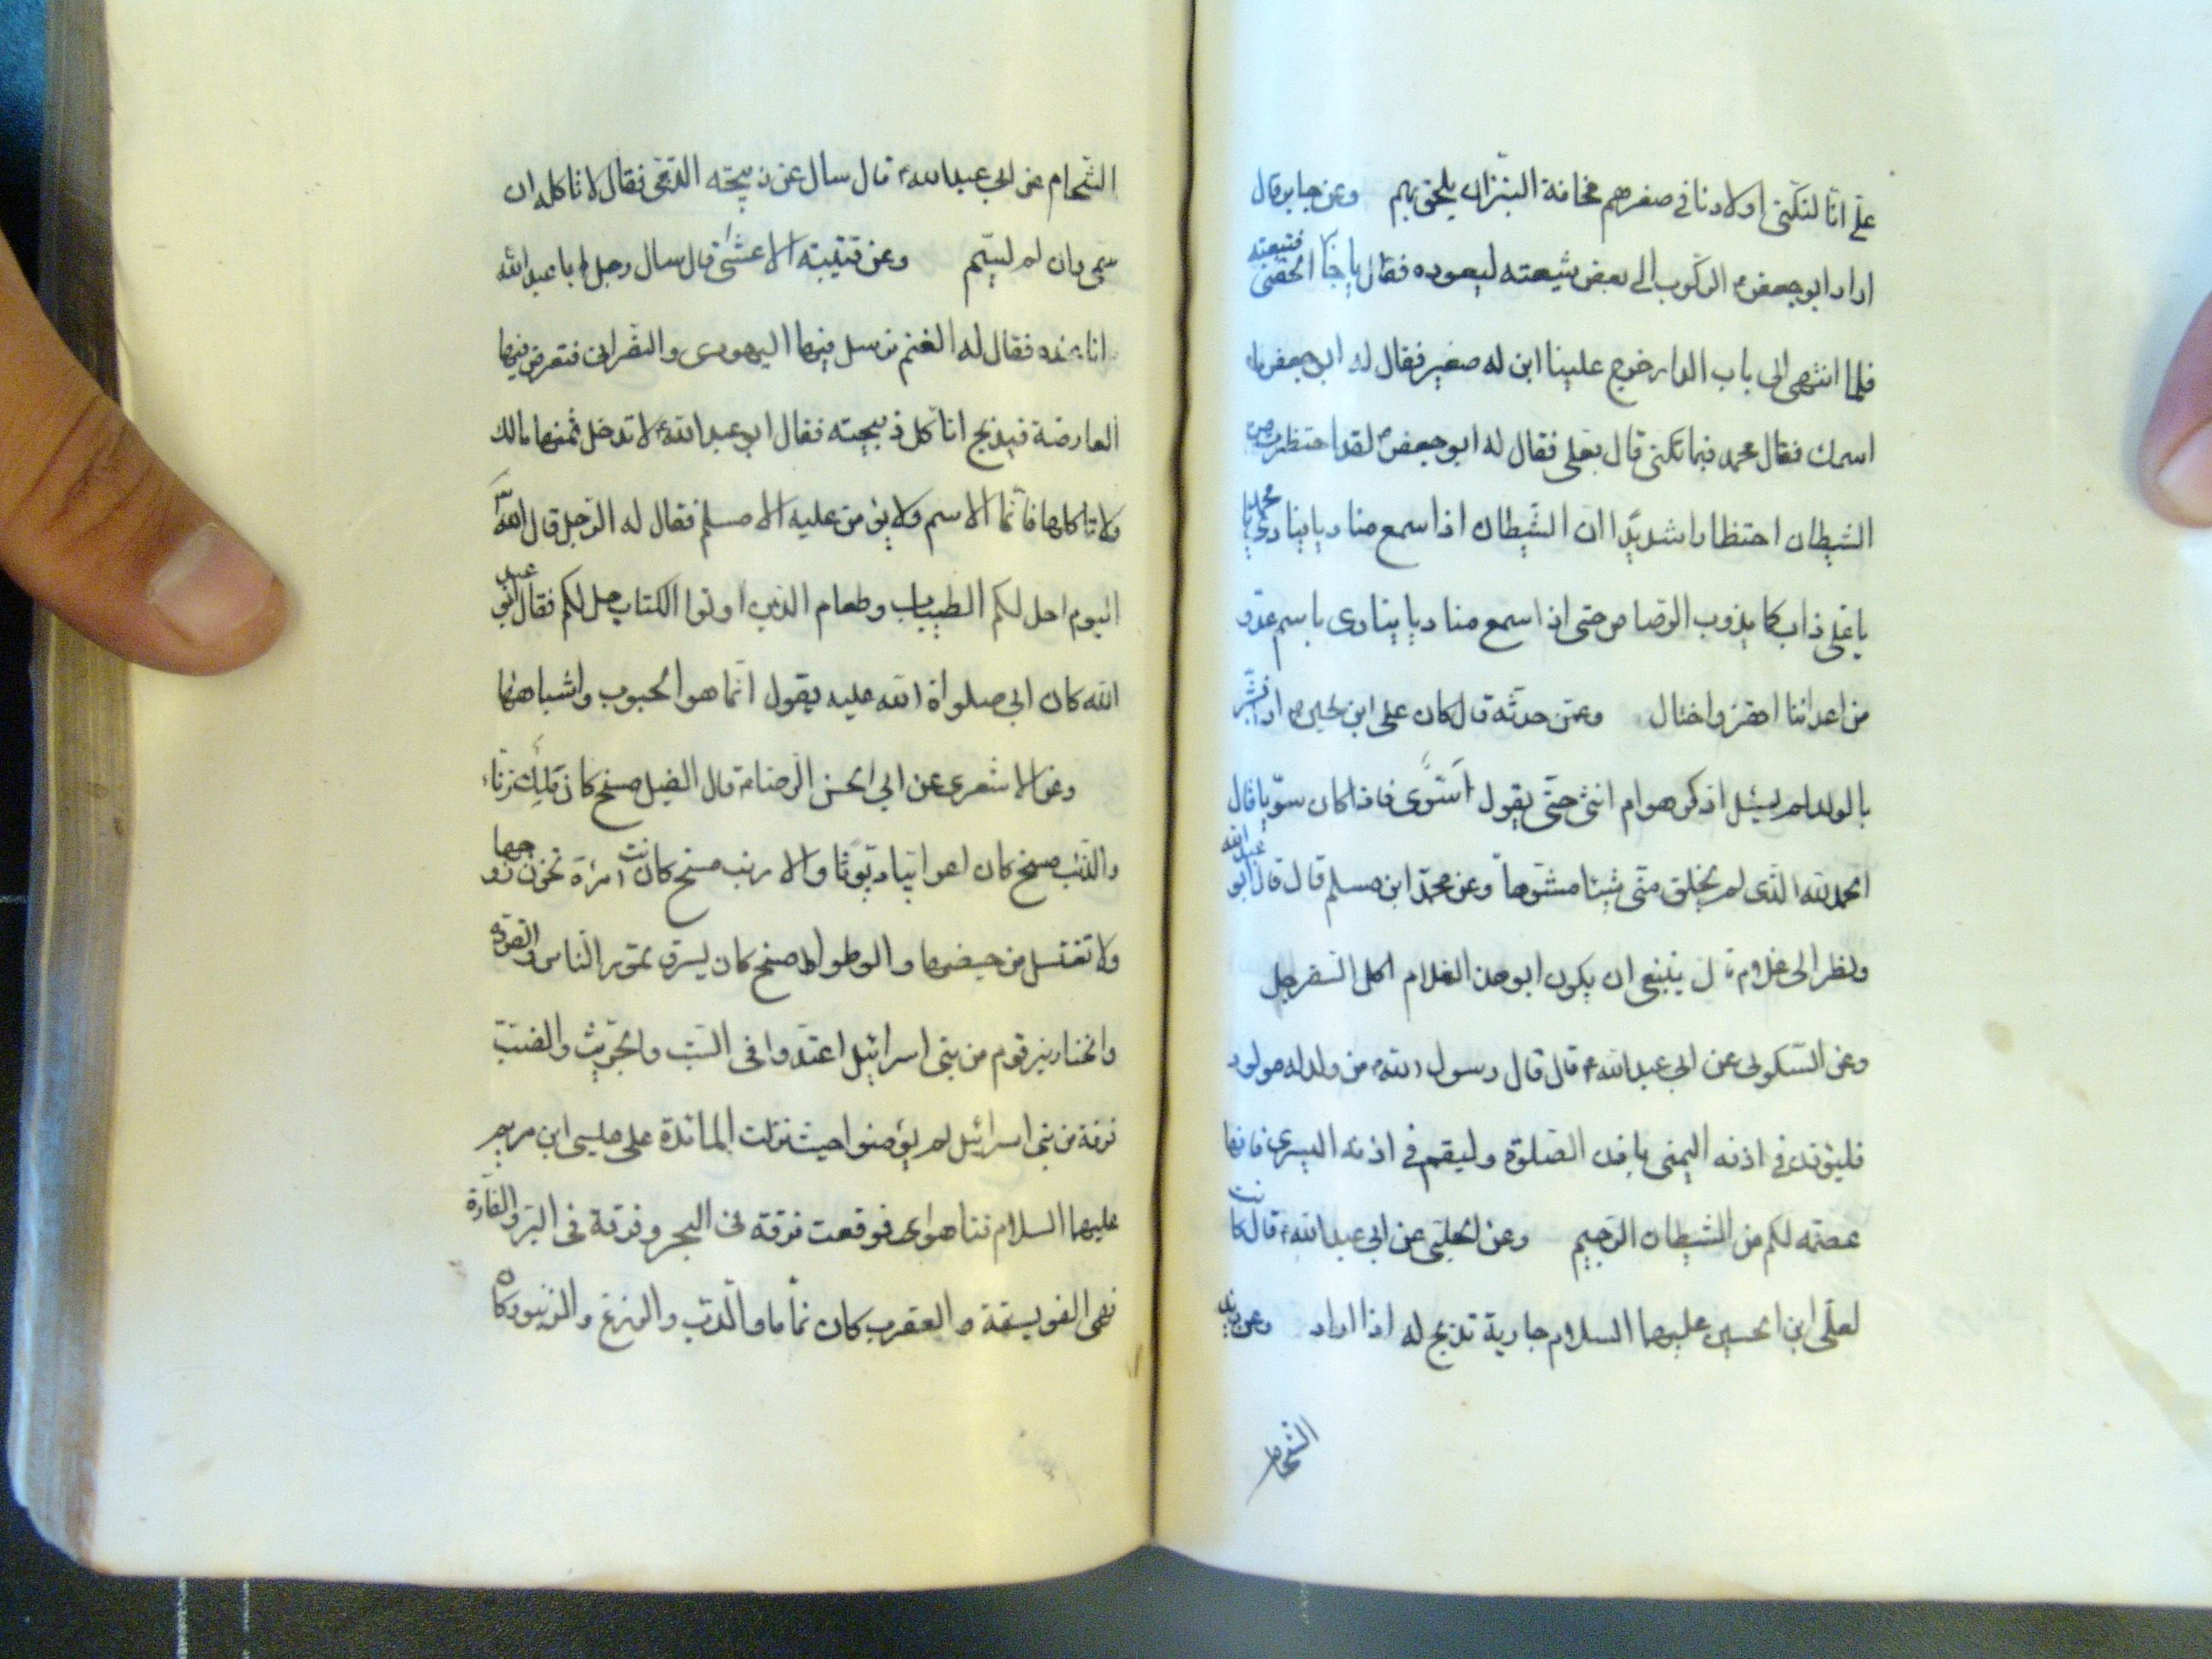 علي انا لنكني اولادنا في صغرهم مخافة النبزان يلحق بهم وعن جابر قال
اراد ابو جعفر الركوب الى بعض شيعته ليعوده فقال يا جابر الحقني فتبعته
فلما انتهى الى باب الدار خرج علينا ابن له صغير فقال له ابو جعفر ما
اسمك فقال محمد فبما تكنى قال بعلي فقال له ابو جعفر لقد احتظرت من
الشيطان احتظارا شديدا ان الشيطان اذا سمع مناديا ينادي يا محمد يا
يا علي ذاب كما يذوب الرصاص حتى اذا سمع مناديا ينادى باسم عدو
من اعدائنا اهتز واختال وعمن حدثه قال كان علي ابن الحسين اذا بشر
بالولد لم يسئل اذكر هو ام انثى حتى يقول اسوى فاذا كان سويا قال
الحمد لله الذى لم يخلق منى شيئا مشوها وعن محمد ابن مسلم قال قال ابو عبد الله
ونظر الى غلام قال ينبغى ان يكون ابو هذا الغلام اكل السفرجل
وعن السكونى عن ابي عبد الله قال قال رسول الله من ولد له مولود
فليؤذن في اذنه اليمنى باذان الصلوة وليقم في اذنه اليسرى فانها
عصمة لكم من الشيطان الرجيم وعن الحلبي عن ابي عبد الله قال كانت
لعلى ابن الحسين عليهما السلام جارية تذبح له اذا اراد وعن زيد
الشحام
الشحام عن ابي عبد الله قال سال عن ذبيحة الذمى فقال لا تاكله ان
سمى وان لم يسم وعن قتيبة الاعشى قال سال رجل ابا عبد الله
انا عنده فقال له الغنم نرسل فيها اليهودى والنصرانى فتعرض فيها
العارضة فيذبح اناكل ذبيحته فقال ابو عبد الله لا تدخل ثمنها مالك
ولا تاكلها فانما الاسم ولا يؤمن عليه الا مسلم فقال له الرجل قال الله
اليوم احل لكم الطيبات وطعام الذين اوتوا الكتاب حل لكم فقال ابو عبد
الله كان ابي صلواة الله عليه يقول انما هو الحبوب واشباهها
وعن الاشعرى عن ابي الحسن الرضا قال الفيل مسخ كان ملك زناء
والذئب مسخ كان اعرابيا ديوثا والارنب مسخ كانت امرأة تخون زوجها
ولا تغتسل من حيضها والوطواط مسخ كان يسرق تمور الناس والقردة
والخنازير قوم من بنى اسرائيل اعتدوا فى السبت والجريث والضب
فرقة من بنى اسرائيل لم يؤمنوا حيث نزلت المائدة على عيسى ابن مريم
عليهما السلام فتاهوا فوقعت فرقة فى البحر وفرقة فى البر والفارة
فهى الفويسقة والعقرب كان نماما والدب والوزغ والزنبور كا